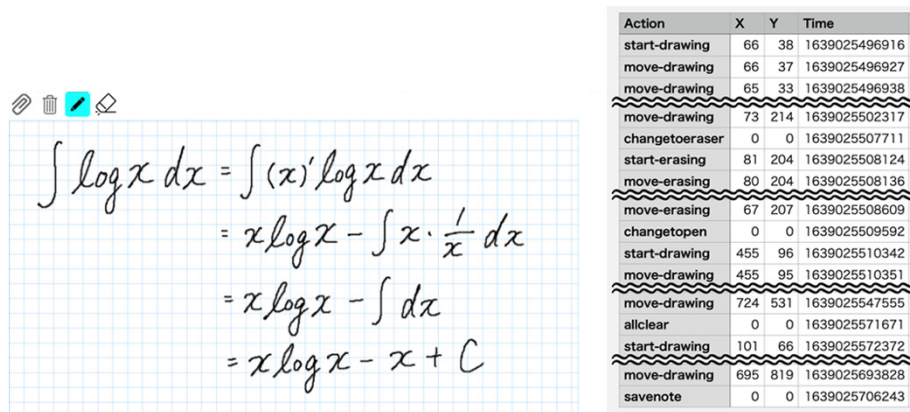 ∫ log x dx = ∫ (x)′ log x dx
= x log x − ∫ x · 1/x dx
= x log x − ∫ dx
= x log x − x + C
Action X Y Time
start-drawing 66 38 1639025496916
move-drawing 66 37 1639025496927
move-drawing 65 33 1639025496938
move-drawing 73 214 1639025502317
changetoeraser 0 0 1639025507711
start-erasing 81 204 1639025508124
move-erasing 80 204 1639025508136
move-erasing 67 207 1639025508609
changetopen 0 0 1639025509592
start-drawing 455 96 1639025510342
move-drawing 455 95 1639025510351
move-drawing 724 531 1639025547555
allclear 0 0 1639025571671
start-drawing 101 66 1639025572372
move-drawing 695 819 1639025693828
savenote 0 0 1639025706243